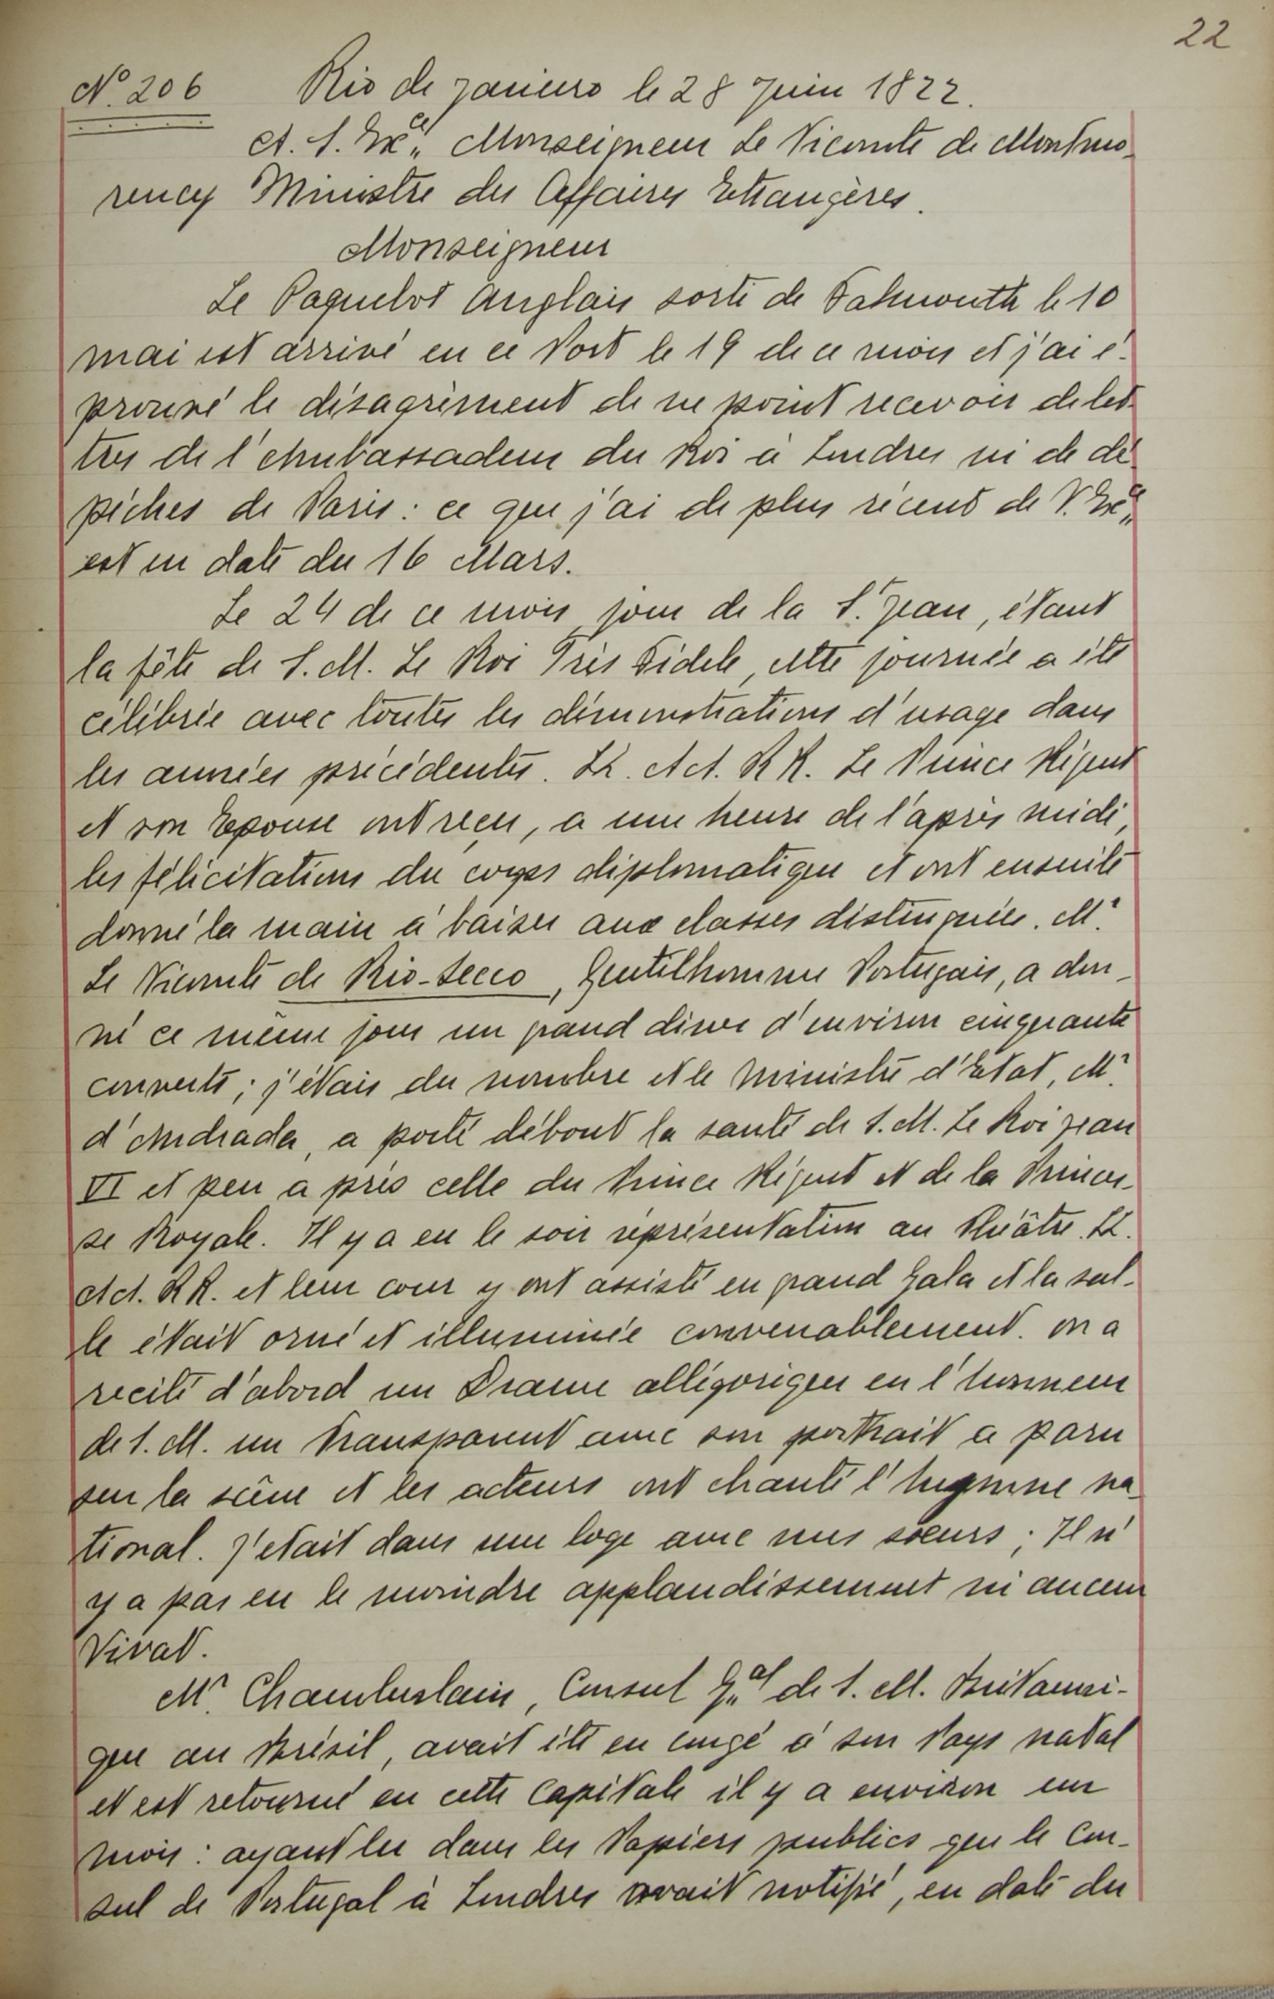 22
Nº 206 Rio de Janiero le 28 Juin 1822.
A. S. Exce„ Monseigneur Le Vicomte de Montmo-
rency Ministre des Affaires Etrangères.
Monseigneur
Le Paquebot Anglais sorti de Falmouth le 10
mai est arrivé en ce Port le 19 de ce mois et j'ai é-
prouvé le désagrèment de ne point recevoir de let-
tres de l'Ambassadeur du Roi à Londres ni de dé-
pêches de Paris: ce que j'ai de plus récent de V. Exce„
est en date du 16 Mars.
Le 24 de ce mois, jour de la St. Jean, étant
la fête de S. M. Le Roi Très Fidele, cette journée a été
célébrée avec toutes les démonstrations d'usage dans
les années précédentes. LL. AA. RR. Le Prince Régent
et son Epouse ont reçu, a une heure de l'après midi,
les félicitations du corps diplomatique et ont ensuite
donné la main à baiser aux classes distinguées. Mr.
Le Vicomte de Rio-Secco, Gentilhomme Portugais, a don-
né ce même jour un grand diner d'environ cinquante
couverts; j'étais du nombre et le Ministre d'Etat, Mr.
d'Andrada, a porté débout la santé de S. M. Le Roi Jean
VI et peu a près celle du Prince Régent et de la Princes-
se Royale. Il y a eu le soir réprésentation au Théâtre. LL.
AA. RR. et leur cour y ont assisté en grand Gala et la sal-
le était orné et illuminée convenablement. on a
recité d'abord un Drame allégorique en l'honneur
de S. M. un Transparent avec son portrait a paru
sur la scène et les acteurs ont chanté l'hymne na-
tional. J'etait dans une loge avec mes soeurs; Il n'
y a pas eu le moindre applaudissement ni aucun
Vivat.
Mr. Chamberlain, Consul Gal„ de S. M. Britanni-
que au Brésil, avait été en congé à son Pays natal
et est retourné en cette Capitale il y a environ un
mois: ayant lu dans les Papiers publics que le Con-
sul de Portugal à Londres avait notifié, en date du